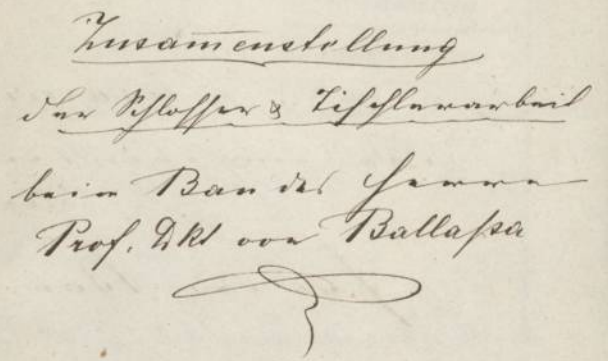 Zusam̅enstellung
der Schlosser & Tischlerarbeit
beim Bau des Herrn
Prof. Dkt von Ballaſsa